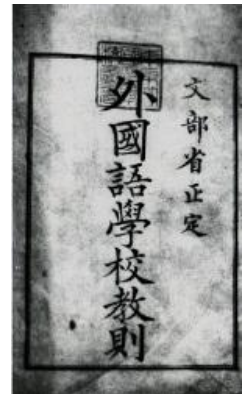 文部省正定
外國語學校教則